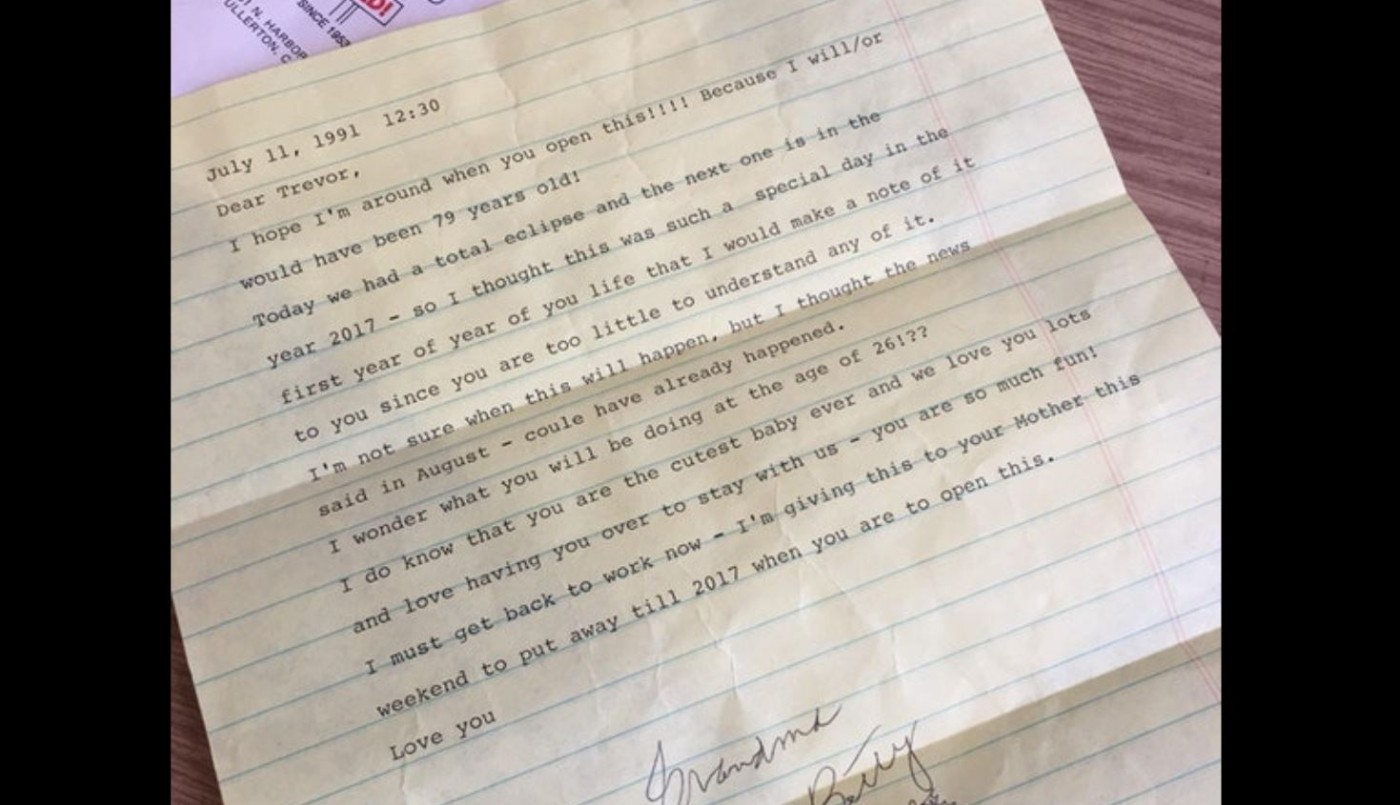 DI!
SINCE 1952
N. HARBOR
ULLERTON, C
July 11, 1991 12:30
Dear Trevor,
I hope I'm around when you open this!!!! Because I will/or
would have been 79 years old!
Today we had a total eclipse and the next one is in the
year 2017 - so I thought this was such a special day in the
first year of year of you life that I would make a note of it
to you since you are too little to understand any of it.
I'm not sure when this will happen, but I thought the news
said in August - coule have already happened.
I wonder what you will be doing at the age of 26!??
I do know that you are the cutest baby ever and we love you lots
and love having you over to stay with us - you are so much fun!
I must get back to work now - I'm giving this to your Mother this
weekend to put away till 2017 when you are to open this.
Love you
Grandma
Betty